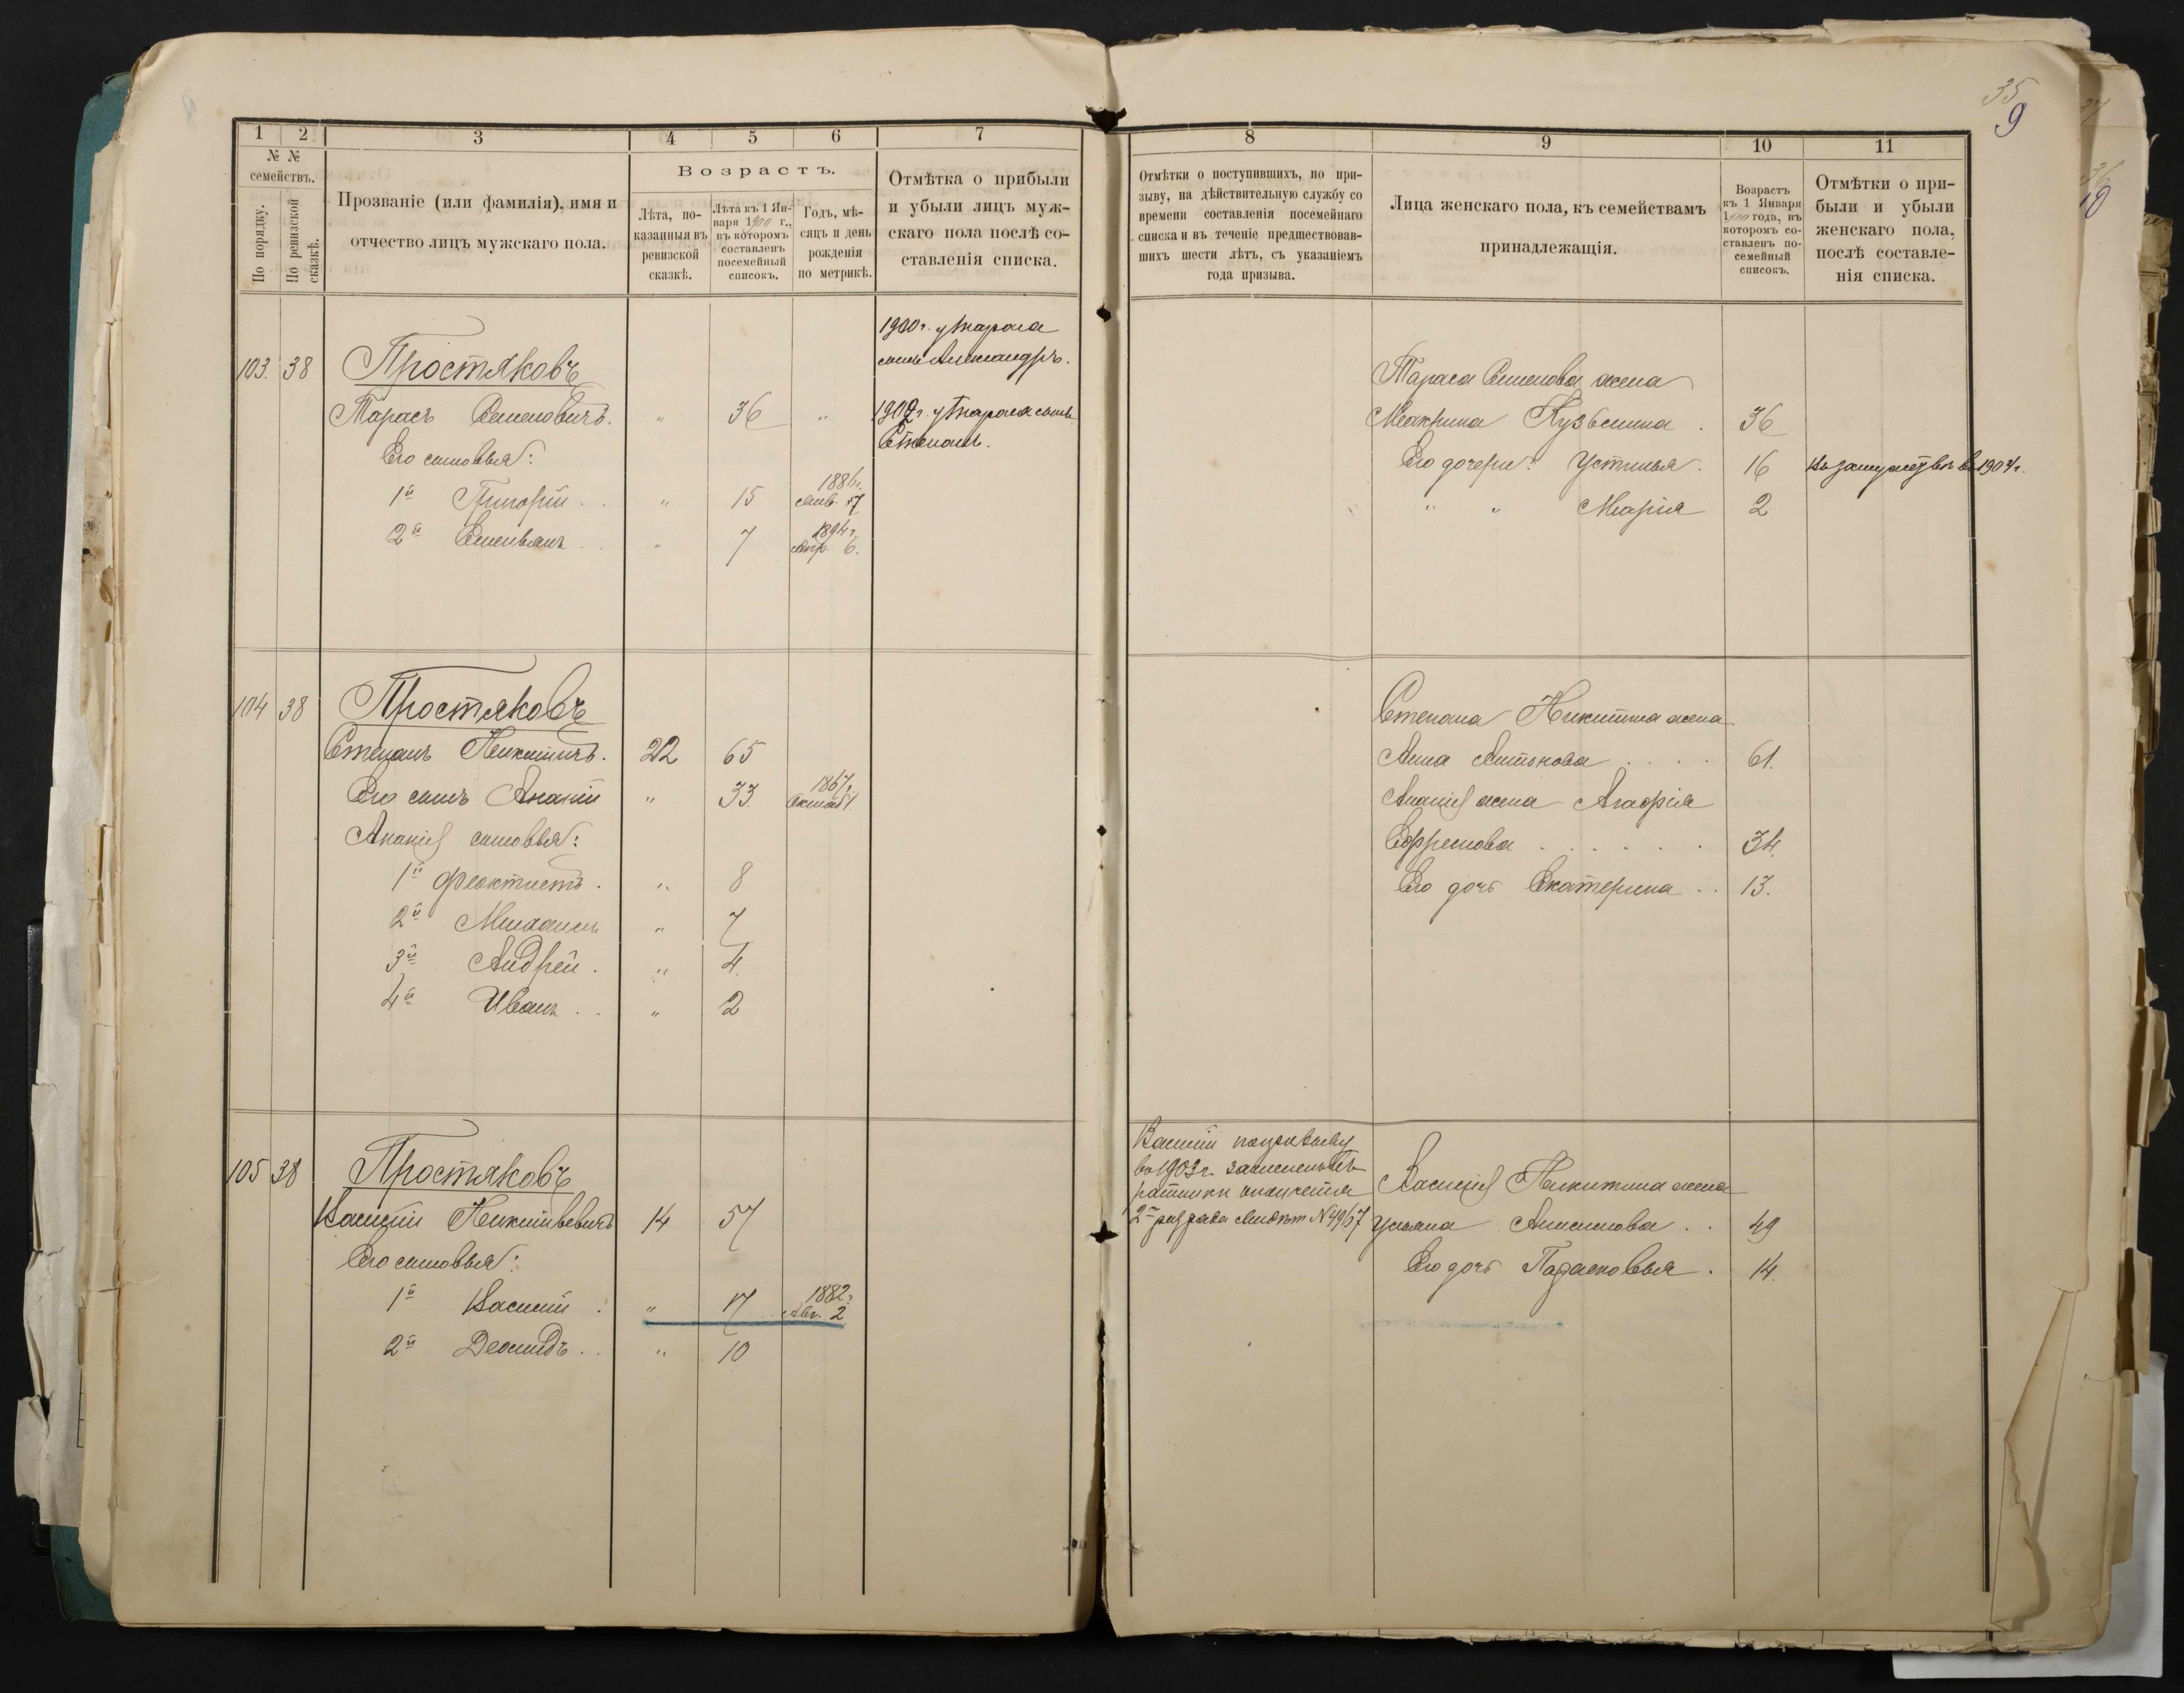 35
9
1 2 3 4 5 6 7
№ №
семействъ.
По порядку.
По ревизской
сказкѣ.
Прозваніе (или фамилія), имя и
отчество лицъ мужскаго пола.
Возрастъ.
Лѣта, по-
казанныя въ
ревизской
сказкѣ.
Лѣта къ 1 Ян-
варя 1900 г.,
въ которомъ
составленъ
посемейный
списокъ.
Годъ, мѣ-
сяцъ и день
рожденія
по метрикѣ.
Отмѣтка о прибыли
и убыли лицъ муж-
скаго пола послѣ со-
ставленія списка.
1900 г. у Тараса
сынъ Александръ.
103. 38 Простяковъ
Тарасъ Семеновичъ. " 36 " 1902 г. у Тараса сынъ
Степанъ.
Его сыновья:
1й Григорій . . " 15 1886 г.
Янв. 17
2й Селиванъ . . " 7 1894 г.
Апр. 6.
104 38 Простяковъ
Степанъ Никитичъ. 22 65
Его сынъ Ананій " 33. 1867 г.
Октяб 1.
Ананія сыновья:
1й Феоктистъ . " 8
2й Михаилъ " 7
3й Андрей . " 4.
4й Иванъ . . " 2
105 38 Простяковъ
Василій Никитьевичъ 14 57
Его сыновья:
1й Василій . " 17 1882 г.
Авг. 2
2й Леонидъ . . " 10
8 9 10 11
Отмѣтки о поступившихъ, по при-
зыву, на дѣйствительную службу со
времени составленія посемейнаго
списка и въ теченіе предшествовав-
шихъ шести лѣтъ, съ указаніемъ
года призыва.
Лица женскаго пола, къ семействамъ
принадлежащія.
Возрастъ
къ 1 Января
1900 года, въ
которомъ со-
ставленъ по-
семейный
списокъ.
Отмѣтки о при-
были и убыли
женскаго пола,
послѣ составле-
нія списка.
Тараса Семенова жена
Макрина Кузьмина . 36
Его дочери: Устинья . 16 Въ замужествѣ въ 1904 г.
" " Марія 2
Степана Никитина жена
Анна Антонова . . . . 61.
Ананія жена Агафія
Ефремова . . . . . . 34.
Его дочь Екатерина . . 13.
Василій по призыву
въ 1903 г. зачисленъ въ
ратники ополченія
2го разряда №4967
Василія Никитина жена
Ульяна Анисимова . . 49
Его дочь Парасковья . 14.